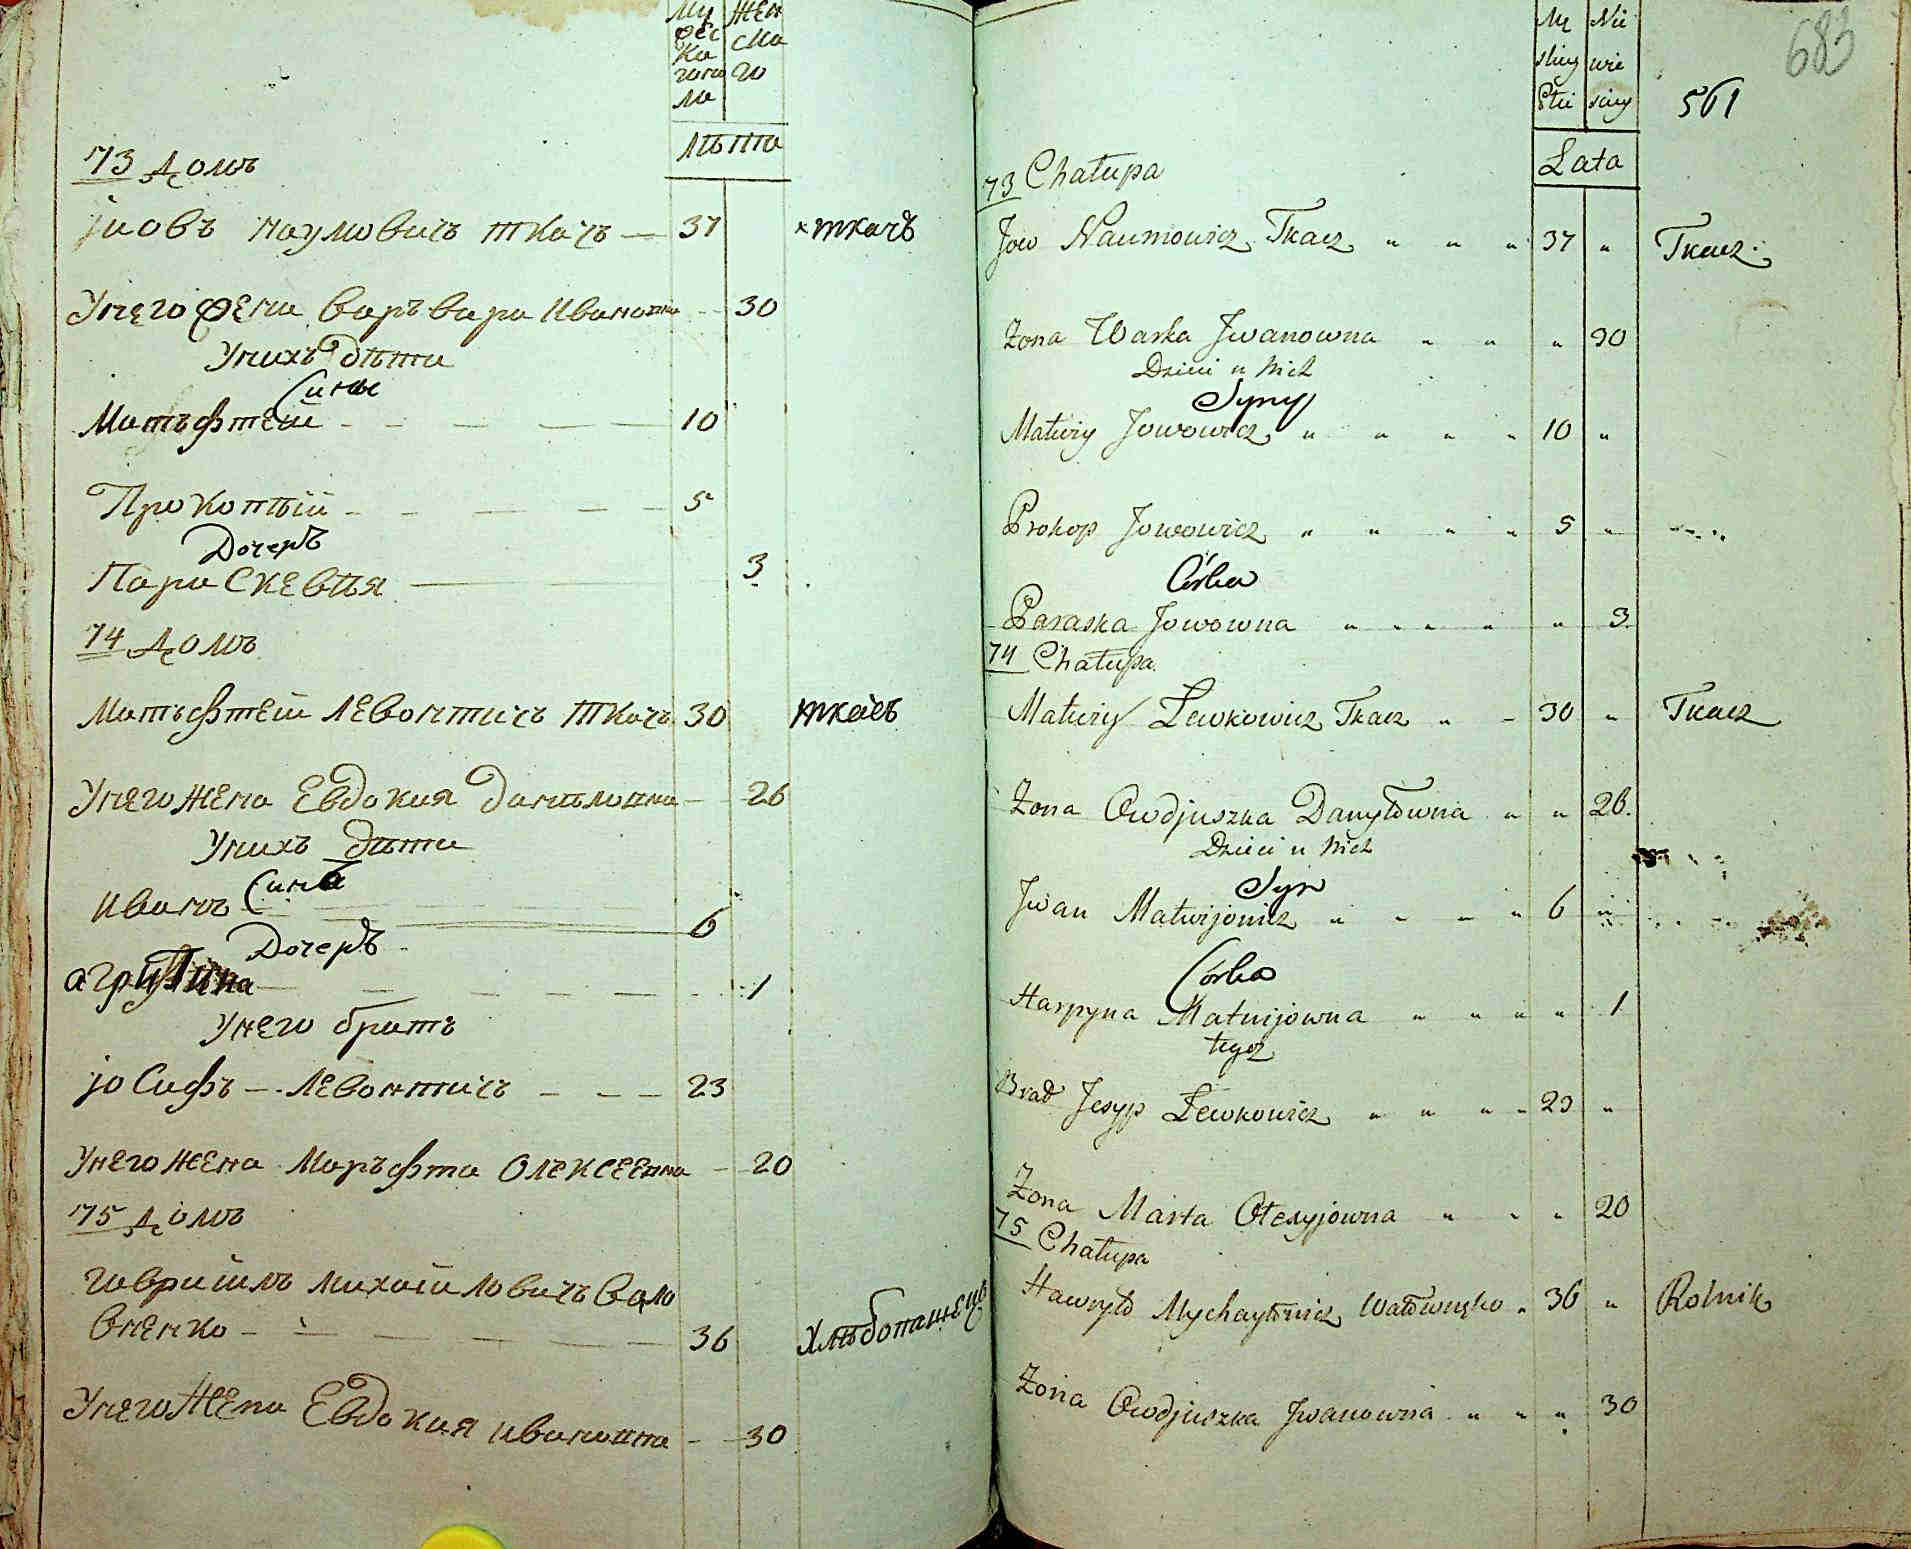 Му Жен
жес ска
ка го
лѣта
73 домъ
іиовъ наумовичъ ткачъ — 37 ткачъ
Унего жена варъвара Ивановна 30
Унихъ дѣти
Сины
Матъфтей 10
Прокопѣй 5
Дочерь
Параскевѣя 3
74 домъ
Матъфтей левонтичъ ткачъ 30 ткачъ
Унего жена Евдокия данилонна 26
Унихъ дѣти
Синъ
иванъ 6
Дочерь
агрипина 1
Унего братъ
іосифъ — левонтичъ 23
Унего жена Маръфта Олексеенна 20
75 домъ
гавриилъ михаиловичъ вало
вненко 36 Хлѣбопашецъ
Унего жена Евдокия ивановна 30
683
561
Lata
73 Chałupa
Jow Naumowicz Tkacz " " " 37 " Tkacz
Żona Warka Jwanowna " " " 30
Dzieci u Nich
Syny
Matwiy Jowowicz " " " " 10 "
Prokop Jowowicz " " " " 5 "
Córka
Paraska Jowowna " " " " " 3
74 Chałupa
Matwiy Lewkowicz Tkacz " " 30 " Tkacz
Żona Owdjuszka Danyłowna " " 26.
Dzieci u Nich
Syn
Jwan Matwijowicz " " " " 6 "
Córka
Harpyna Matwijowna " " " " 1
tegoż
Brad Jesyp Lewkowicz " " " " 23 "
Żona Marta Ołexyjowna " " " 20
75 Chałupa
Hawryło Mychayłowicz Wałownenko " 36 " Rolnik
Żona Owdjuszka Jwanowna " " " 30